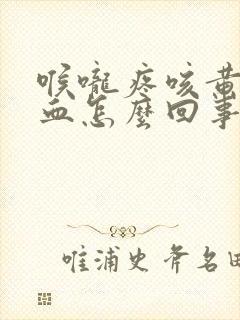 喉嚨疼咳黃
血怎麼回事
唯浦史斧名田